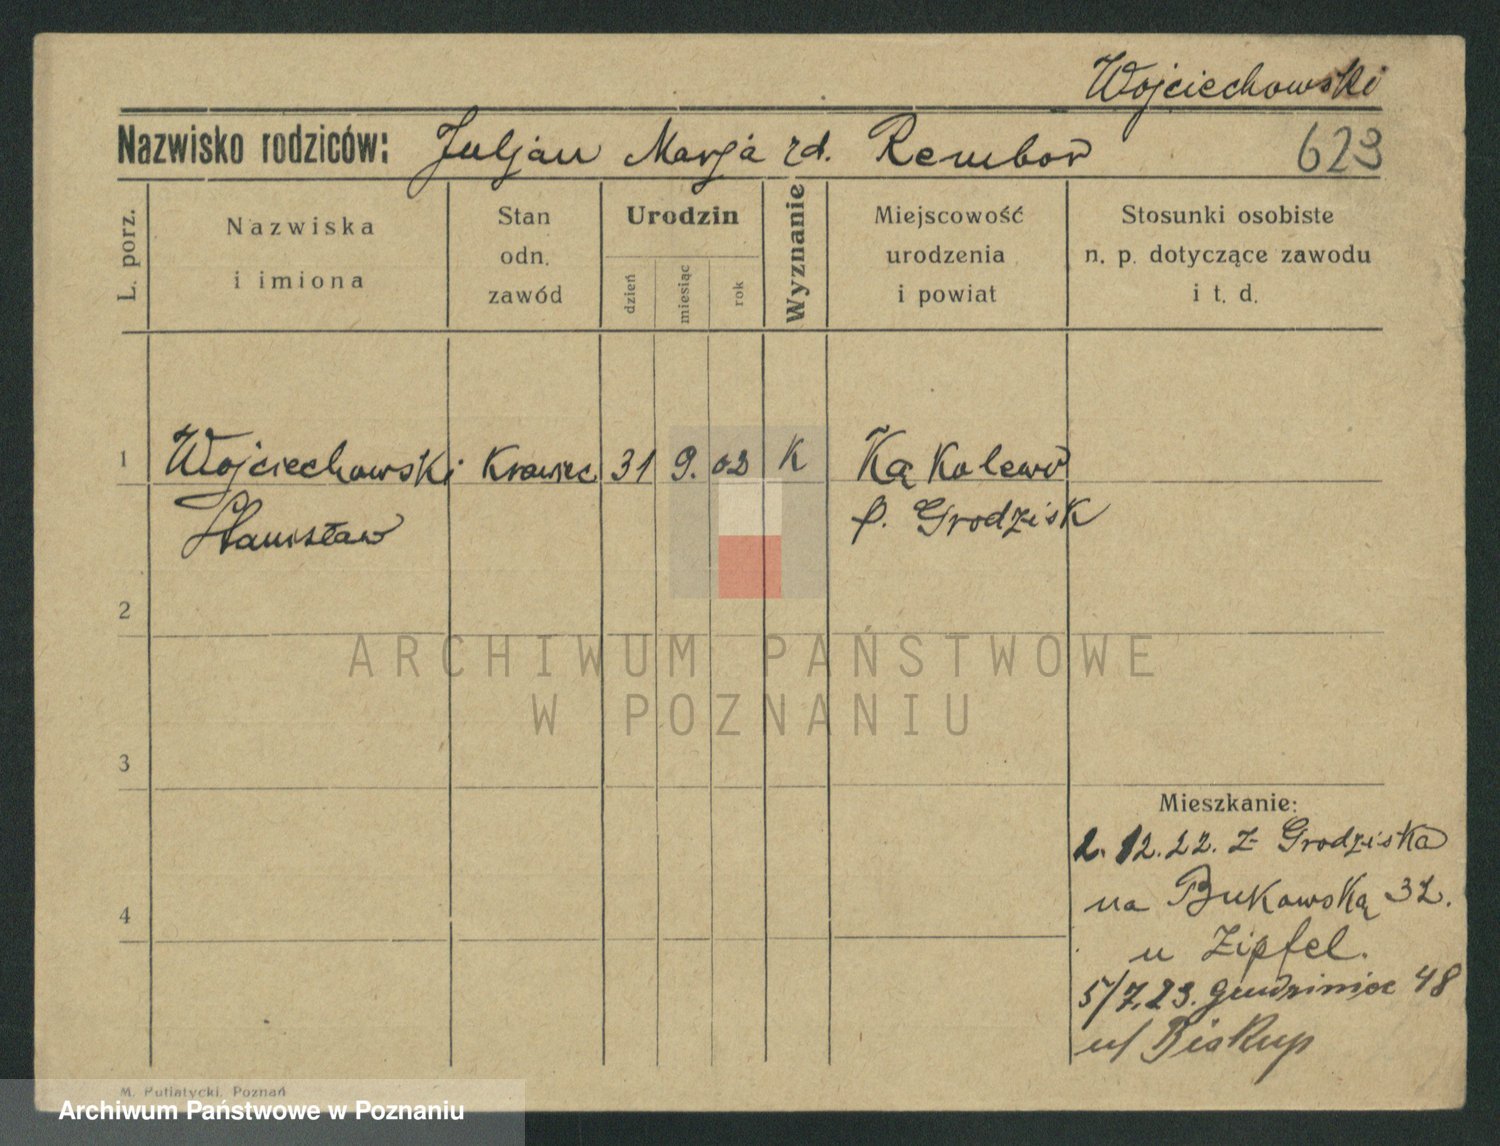 Wojciechowski
Nazwisko rodziców: Juljan Marja zd. Rembor
623
L. porz.
Nazwiska
i imiona
Stan
odn.
zawód
Urodzin
dzień
miesiąc
rok
Wyznanie
Miejscowość
urodzenia
i powiat
Stosunki osobiste
n. p. dotyczące zawodu
i t. d.
1 Wojciechowski Krawiec 31 9. 02 K Kąkolewo
Stanisław p. Grodzisk
2
ARCHIWUM PAŃSTWOWE
W POZNANIU
3
Mieszkanie:
2. 12. 22. z Grodziska
na Bukowską 32.
4
u Zipfel.
5/7.23. 48
u/ Biskup
M. Putiatycki, Poznań
Archiwum Państwowe w Poznaniu